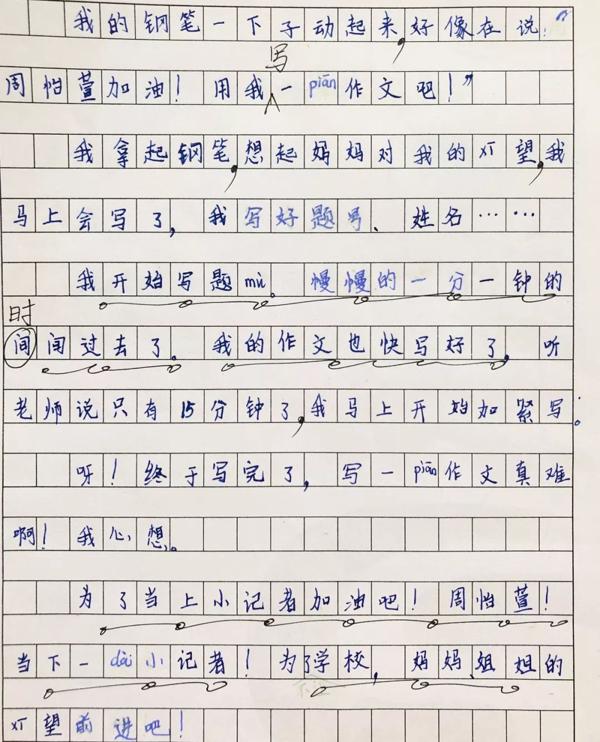 我的钢笔一下子动起来,好像在说:“
写
周怡萱加油!用我一piān作文吧!”
我拿起钢笔,想起妈妈对我的望,我
马上会写了,我写好题号、姓名……
我开始写题mù。慢慢的一分一钟的
时
间闻过去了。我的作文也快写好了,听
老师说只有15分钟了,我马上开始加紧写。
呀!终于写完了,写一piān作文真难
啊!我心想。
为了当上小记者加油吧!周怡萱!
当下一dài小记者!为了学校,妈妈、姐姐的
望前进吧!